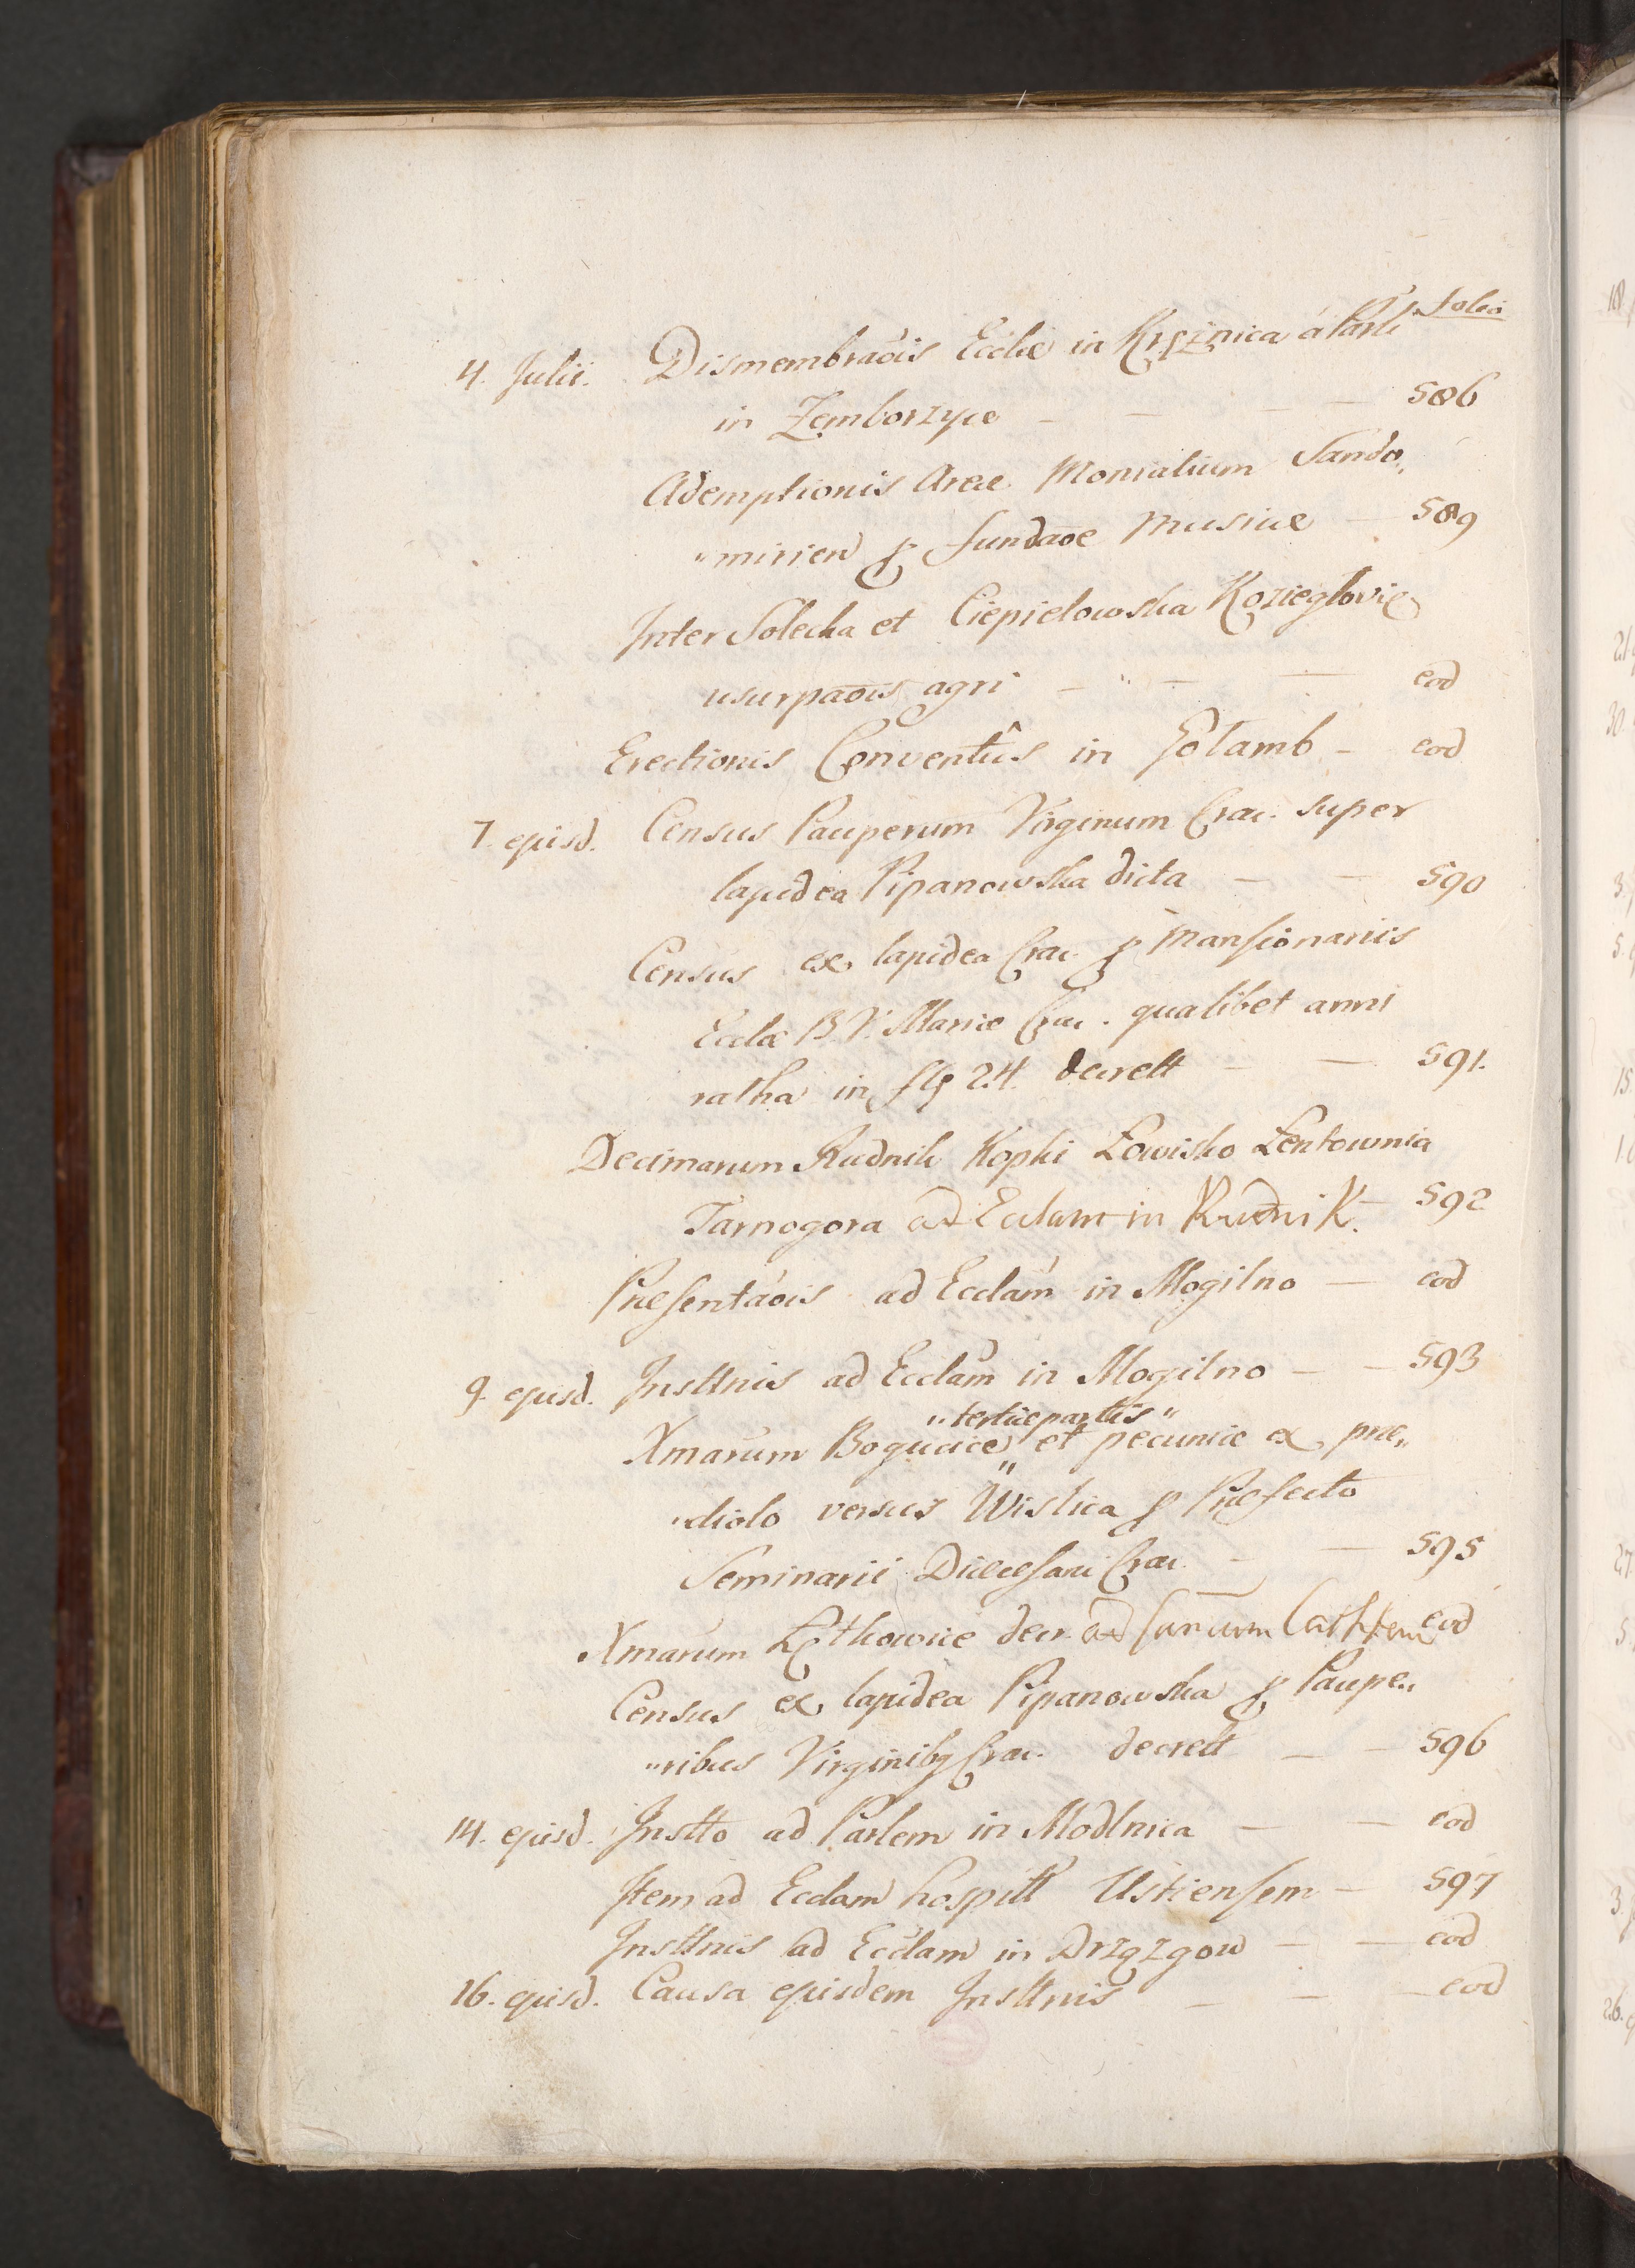 folio
4. Julii. Dismembraõis Ecclæ in Krężnica à Parli
in Zemborzyce — — — — 586
Ademptionis Areæ Monialium Sando„
„mirien ꝑ fundaõe Musicæ — 589
Inter Solecka et Ciepielowska Kozieglovie
usurpaõis agri — — — — eod
Erectionis Conventûs in Jo᷃lamb — eod
7. ejusd. Census Pauperum Virginum Crac. super
lapidea Pipanowska dicta — — 590
Census ex lapidea Crac. ꝑ Mansionariis
Ecclæ B. V. Mariæ Crac. qualibet anni
ratha in flg 24. decrett — — 591.
Decimarum Rudnik Kopki Łowisko Łentownia
Tarnogora ad Ecclam in Rudnik. — 592
Præsentaõis ad Ecclam in Mogilno — eod
9. ejusd. Insttnis ad Ecclam in Mogilno — — 593
„tertiæ partis„
Xmarum Bogucice et pecuniæ ex præ„
„diolo versus Wislica ꝑ Præfecto
Seminarii Diœcesani Crac. — — 595
Xmarum Łęthowice decr. ad Cathlem eod
Census ex lapidea Pipanowska ꝑ Paupe„
„ribus Virginibg Crac. decrett — — 596
14. ejusd. Instto ad Parlem in Modlnica — — eod
Item ad Ecclam hospitt Ustiensem — 597
Insttnis ad Ecclam in Drzązgow — — eod
16. ejusd. Causa ejusdem Insttnis — — — eod